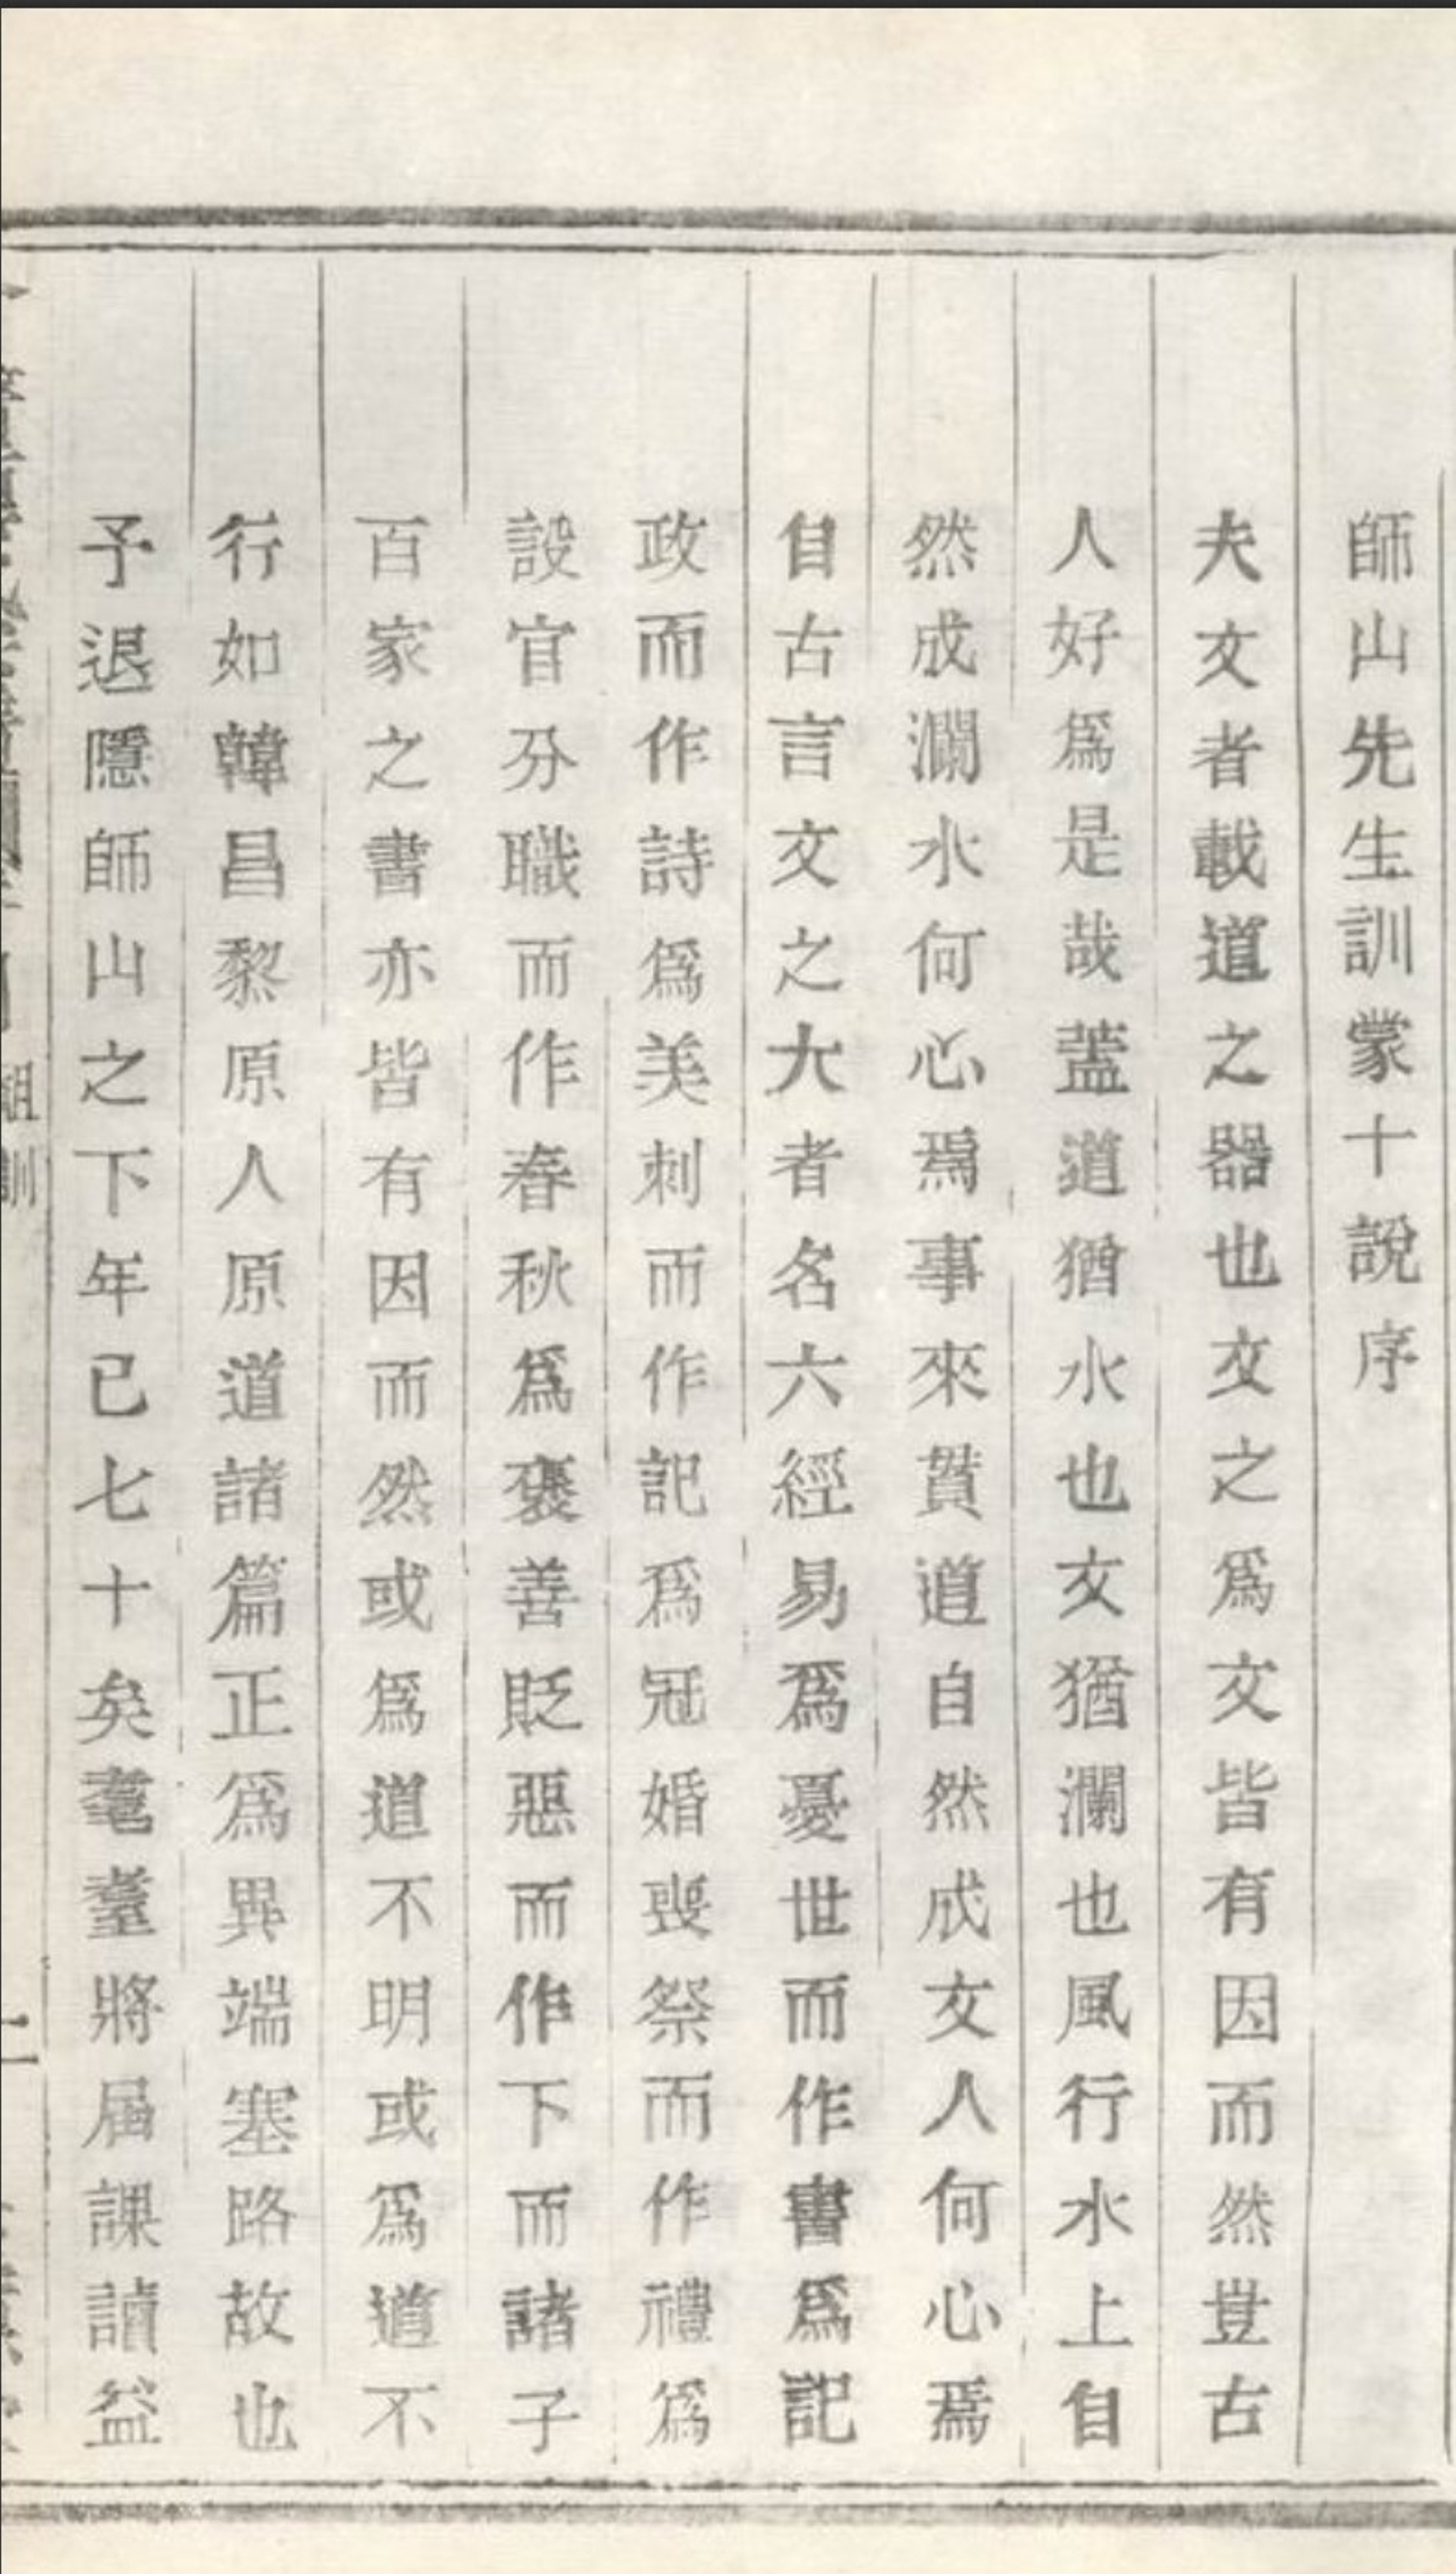 師山先生訓蒙十說序
夫文者載道之器也文之爲文皆有因而然豈古
人好爲是哉蓋道猶水也文猶瀾也風行水上自
然成瀾水何心焉事來貫道自然成文人何心焉
自古言文之大者名六經易爲憂世而作書爲記
政而作詩爲美刺而作記爲冠婚喪祭而作禮爲
設官分職而作春秋爲褒善貶惡而作下而諸子
百家之書亦皆有因而然或爲道不明或爲道不
行如韓昌黎原人原道諸篇正爲異端塞路故也
予退隱師山之下年已七十矣耄耋將屆課讀益
祖訓